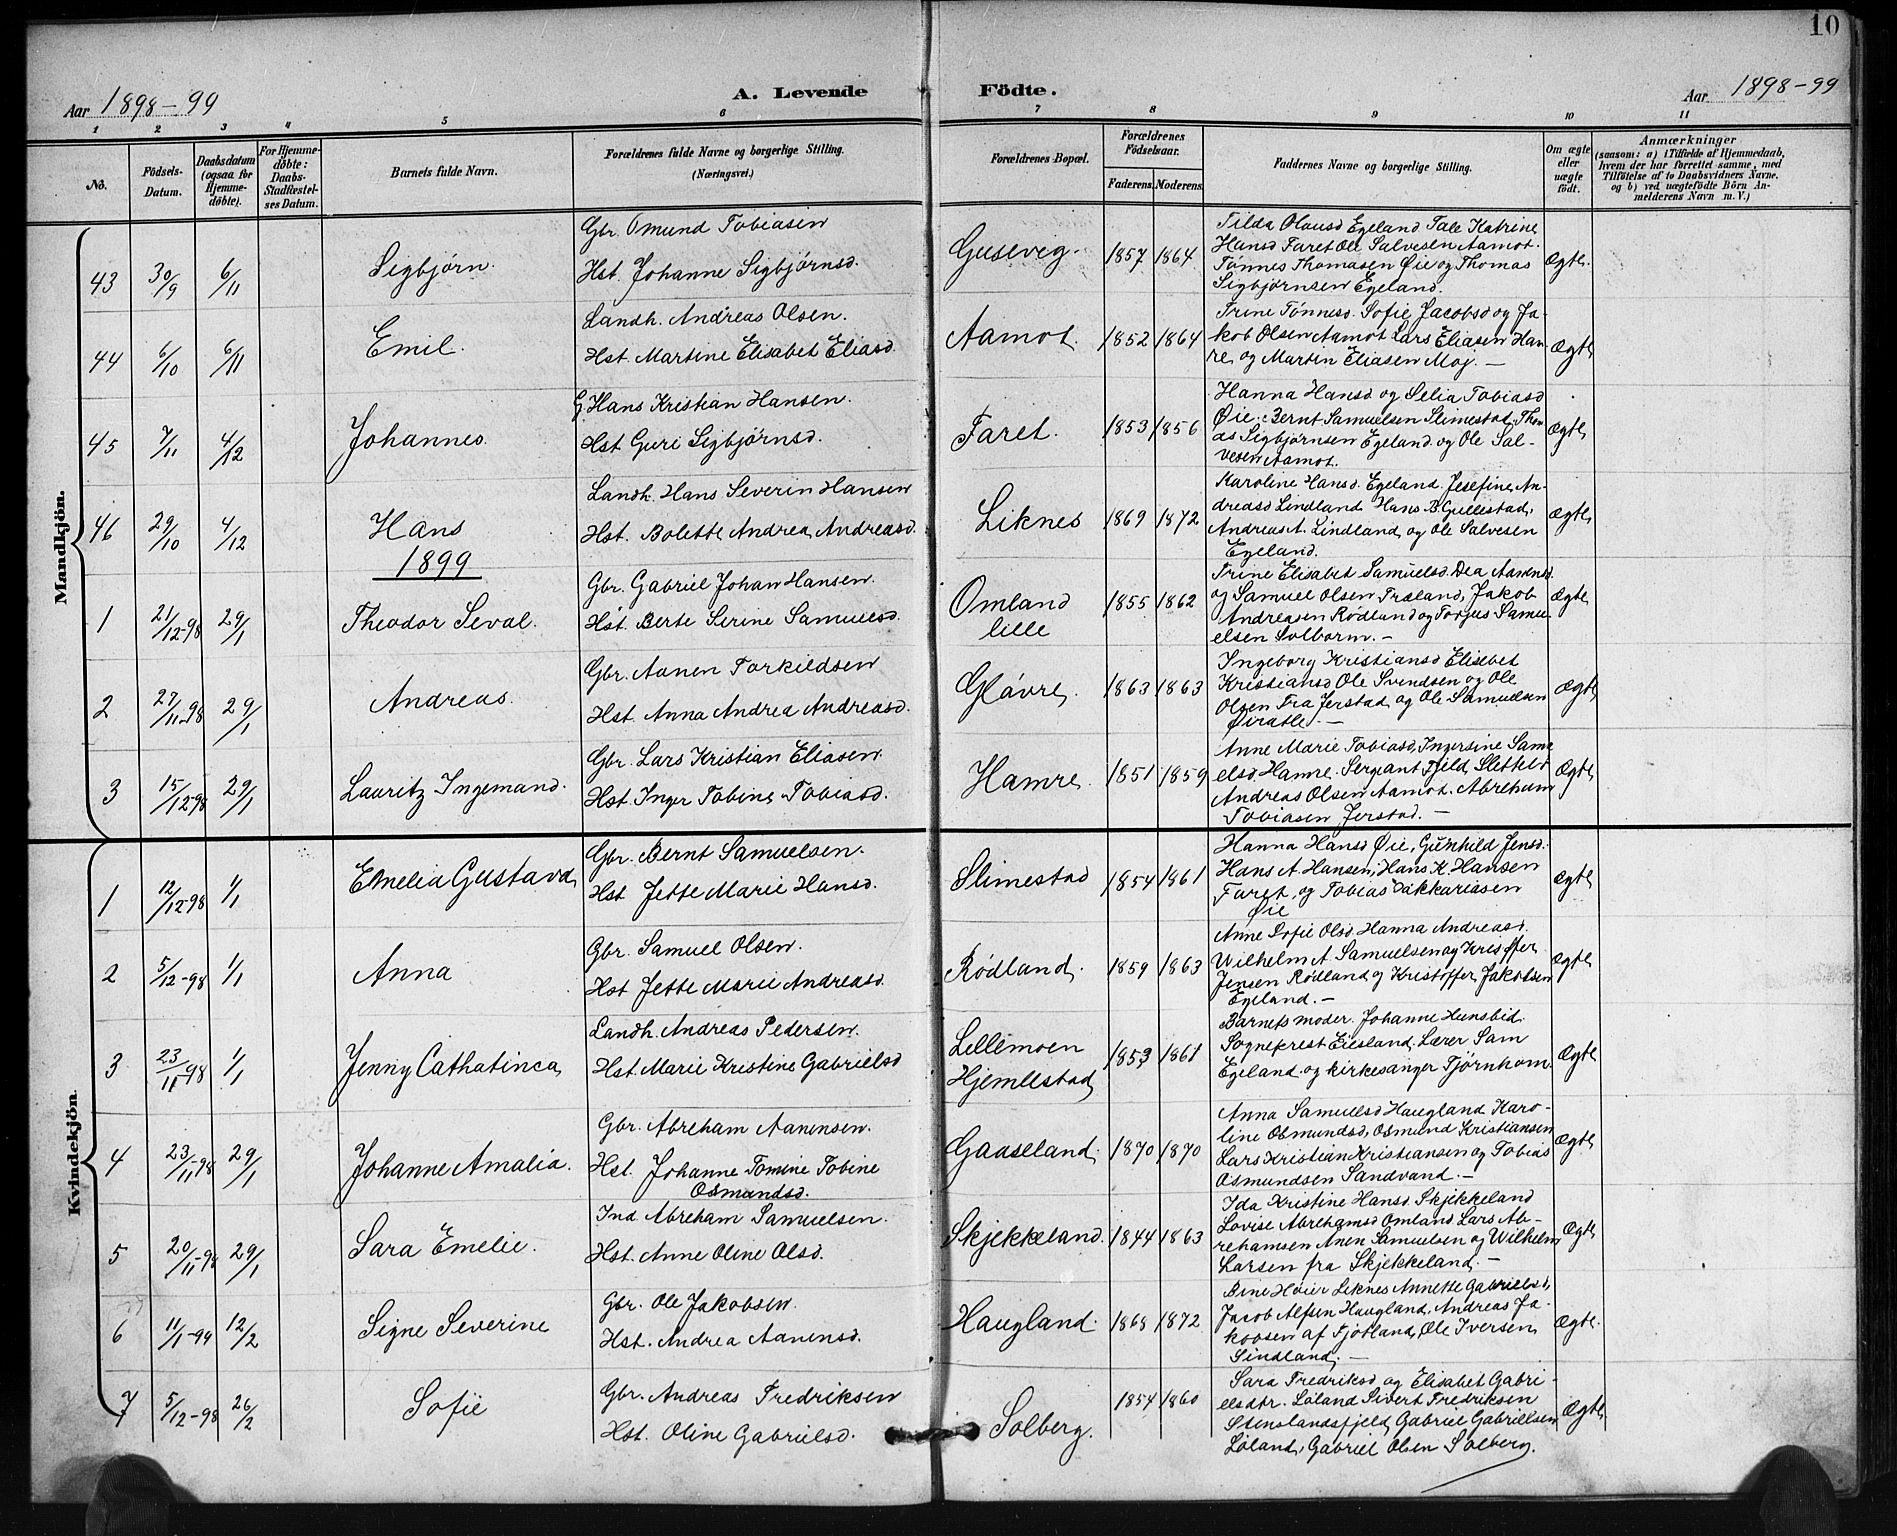 10
Aar 1898-99
A. Levende Födte.
Aar 1898-99
1 2 3 4 5 6 7 8 9 10 11
No.
Födsels-Datum.
Daabsdatum (ogsaa for Hjemme-döbte).
For Hjemme-döbte: Daabs-Stadfæstel-ses Datum.
Barnets fulde Navn.
Forældrenes fulde Navne og borgerlige Stilling. (Næringsvei.)
Forældrenes Bopæl.
Forældrenes Födselsaar.
Faderens. Moderens.
Faddernes Navne og borgerlige Stilling.
Om ægte eller uægte födt.
Anmærkninger
(saasom: a) i Tilfælde af Hjemmedaab,
hvem der har forrettet samme, med
Tilföielse af to Daabsvidners Navne,
og b) ved uægtefödte Börn An-
melderens Navn m. V.)
Mandkjön.
43 30/9 6/11 Sigbjørn. Gbr. Omund Tobiasen
Hst. Johanne Sigbjørnsd.
Guseveg. 1857 1864
Tilda Olausd Egeland Tale Katrine
Hansd Faret Ole Salvesen Aamot.
Tønnes Thomasen Øie og Thomas
Sigbjørnsen Egeland.
Ægte.
44 6/10 6/11 Emil. Landh. Andreas Olsen.
Hst. Martine Elisabet Eliasd.
Aamot. 1852 1864
Trine Tønnesd. Sofie Jacobsd og Ja-
kob Olsen Aamot Lars Eliasen Ham-
re og Martin Eliasen Moj. —
Ægte
45 7/11 4/12 Johannes. G. Hans Kristian Hansen.
Hst. Guri Sigbjørnsd.
Faret. 1853 1856
Hanna Hansd og Selia Tobiasd
Øie. Bernt Samuelsen Slimestad, Thom-
as Sigbjørnsen Egeland og Ole Sal-
vesen Aamot.
Ægte
46 29/10 4/12 Hans Landh. Hans Severin Hansen
Hst. Bolette Andrea Andreasd.
Liknes 1869 1872
Karoline Hansd. Egeland. Jesefine An-
dreasd Lindland Hans B. Gullestad,
Andreas A. Lindland og Ole Salvesen
Egeland.
Ægte
1899
1 21/12-98 29/1 Theodor Seval. Gbr. Gabriel Johan Hansen.
Hst. Berte Serine Samuelsd.
Omland
lille
1855 1862
Trine Elisabet Samuelsd. Dea Aanensd.
og Samuel Olsen Træland, Jakob
Andreasen Rødland og Torjus Samu-
elsen Solborm. —
Ægte
2 27/11-98 29/1 Andreas. Gbr. Aanen Torkildsen
Hst. Anna Andrea Andreasd.
Gløvre. 1863 1863
Ingeborg Kristiansd Elisebet
Kristiansd Ole Svendsen og Ole
Olsen Fra Jerstad og Ole Samuelsen
Ægte
3 15/12-98 29/1 Lauritz Ingemand. Gbr. Lars Kristian Eliasen.
Hst. Inger Tobine Tobiasd.
Hamre. 1851 1859
Anne Marie Tobiasd, Ingersine Samu-
elsd. Hamre. Sergiant Fjeld, Sletteld
Andreas Olsen Aamot. Abreham
Tobiasen Jerstad. —
Ægte
Kvindekjön.
1 12/12-98 1/1 Emelia Gustava Gbr. Bernt Samuelsen.
Hst. Jette Marie Hansd.
Slimestad 1854 1861
Hanna Hansd Øie, Gunhild Jensd.
Hans A. Hansen, Hans K. Hansen
Faret, og Tobias Sakkariasen
Øie
Ægte
2 5/12-98 1/1 Anna Gbr. Samuel Olsen.
Hst. Jette Marie Andreasd.
Rødland. 1859 1863
Anne Sofie Olsd. Hanna Andreasd.
Wilhelm A. Samuelsen og Kristoffer
Jensen Rødland og Kristoffer Jakobsen
Egeland. —
Ægte
3 23/11-98 1/1 Jenny Cathatinca Landh. Andreas Pedersen.
Hst. Marie Kristine Gabrielsd
Lillemoen
Hjemlestad
1853 1861
Barnets moder. Johanne Hunsbid.
Sogneprest Eiesland. Lærer Sam
Egeland og kirkesanger Tjørnhom.
Ægte
4 23/11-98 29/1 Johanne Amalia. Gbr. Abreham Aanensen.
Hst. Johanne Tomine Tobine
Osmundsd.
Gaaseland. 1870 1870
Anna Samuelsd Haugland Karo-
line Osmundsd, Osmund Kristiansen
Lars Kristian Kristiansen og Tobias
Osmundsen Sandvand. —
Ægte
5 20/11-98 29/1 Sara Emelie. Ind. Abreham Samuelsen.
Hst. Anne Oline Olsd.
Skjekkeland. 1844 1863
Ida Kristine Hansd Skjekkeland
Lovise Abrehamsd Omland Lars Ab-
rehamsen Anen Samuelsen og Wilhelm
Larsen fra Skjekkeland. —
Ægte
6 11/1-99 12/2 Signe Severine Gbr. Ole Jakobsen.
Hst. Andrea Aanensd.
Haugland. 1868 1872
Bine Høier Liknes Annette Gabrielsd,
Jacob Alfsen Haugland, Andreas Ja-
kobsen af Fjotland, Ole Iversen
Sindland. —
Ægte.
7 5/12-98 26/2 Sofie Gbr. Andreas Fredriksen
Hst. Oline Gabrielsd.
Solberg. 1854 1860
Sara Fredriksd og Elisabet Gabri-
elsdtr. Løland Sivert Fredriksen
Stenslandsfjeld, Gabriel Gabrielsen
Løland, Gabriel Olsen Solberg.
Ægte.